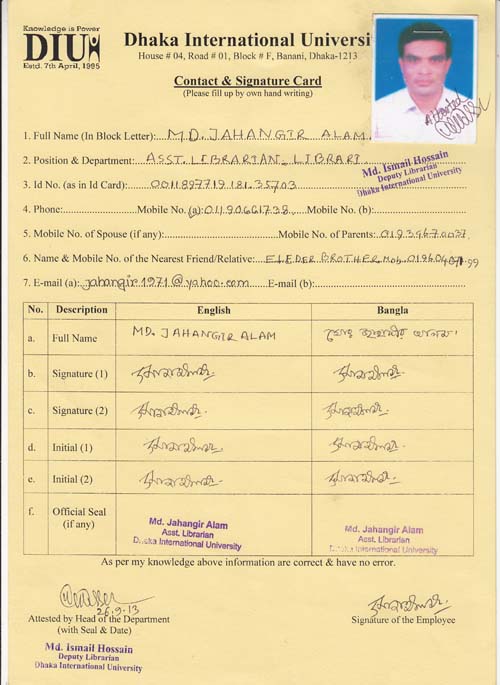 Knowledge is Power
DIU
Estd. 7th April, 1995
Dhaka International Universi
House # 04, Road # 01, Block # F, Banani, Dhaka-1213
Contact & Signature Card
(Please fill up by own hand writing)
Attested
1. Full Name (In Block Letter): MD. JAHANGIR ALAM
2. Position & Department: ASST. LIBRARIAN. LIBRARI
Md. Ismail Hossain
Deputy Librarian
Dhaka International University
3. Id No. (as in Id Card): 0011897719181.35703
4. Phone: Mobile No. (a): 01190661738 Mobile No. (b):
5. Mobile No. of Spouse (if any): Mobile No. of Parents:
6. Name & Mobile No. of the Nearest Friend/Relative: ELEDER BROTHER Mob.
7. E-mail (a): jahangir1971@yahoo.com E-mail (b):
No. Description English Bangla
a. Full Name MD. JAHANGIR ALAM মোঃ জাহাঙ্গীর আলম
b. Signature (1)
c. Signature (2)
d. Initial (1)
e. Initial (2)
f. Official Seal (if any)
Md. Jahangir Alam
Asst. Librarian
Dhaka International University
Md. Jahangir Alam
Asst. Librarian
Dhaka International University
As per my knowledge above information are correct & have no error.
26.9.13
Attested by Head of the Department
(with Seal & Date)
Signature of the Employee
Md. Ismail Hossain
Deputy Librarian
Dhaka International University